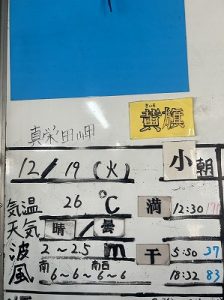 真栄田岬
黄旗
12/19(火) 小 朝
気温 26℃ 満 12:30 171
天気 晴/曇
波 2~2.5m 干 5:50 37
風 南6~6~南西6~6 18:32 83